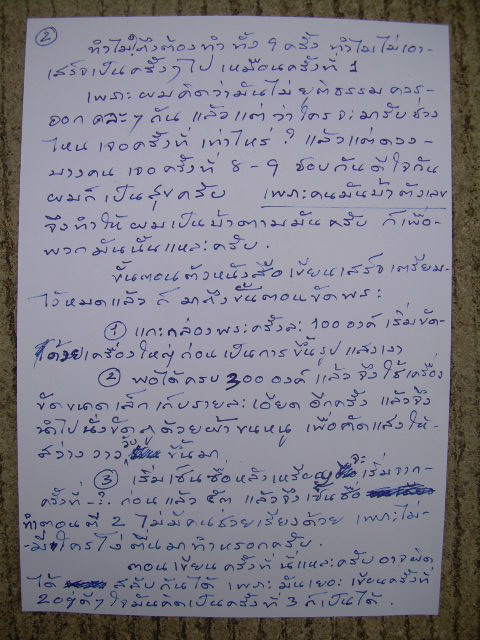 ②
ทำไมถึงต้องทำ ทั้ง 9 ครั้ง ทำไมไม่เอา-
เสร็จเป็นครั้งๆไป เหมือนครั้งที่ 1
เพราะ ผมคิดว่ามันไม่ยุติธรรม ควร-
ออก คละๆ กัน แล้วแต่ ว่าใครจะมารับช่วง
ไหน เจอครั้งที่ เท่าไหร่ ? แล้วแต่ดวง-
บางคน เจอครั้งที่ 8-9 ชอบกัน ดีใจกัน
ผมก็เป็นสุขครับ เพราะคนมันบ้าตัวเลข
จึงทำให้ผมเป็นบ้าตามมันครับ ก็เพื่อ-
พวกมันนั้นแหละครับ.
ขั้นตอนตัวหนังสือเขียนเสร็จเตรียม-
ไว้หมดแล้ว ก็มาถึงขั้นตอนขัดพระ:
① แกะกล่องพระครั้งละ 100 องค์ เริ่มขัด-
ด้วยเครื่องใหญ่ก่อนเป็นการขึ้นรูป แสงเงา
② พอได้ครบ 300 องค์ แล้ว จึงใช้เครื่อง
ขัดขนาดเล็กเก็บรายละเอียด อีกครั้ง แล้วจึง
นำไปนั่งขัดถูด้วยผ้าขนหนู เพื่อคัดแสงให้-
สว่าง วาววับ ขึ้นมา
③ เริ่มเซ็นชื่อหลังเหรียญ จะเริ่มจาก-
ครั้งที่ -?- ก่อน แล้ว ตี๊ต แล้วจึงเซ็นชื่อ
ทำตอน ตี 2 ไม่มีคนช่วยเรียงด้วย เพราะไม่-
-มีใครโง่ ตื่นมาทำหรอกครับ.
ตอนเขียนครั้งที่ นี่แหละครับ อาจผิด
ได้ สลับกันได้ เพราะมันเยอะ เขียนครั้งที่
2อยู่ดีๆ ใจมันคิดเป็นครั้งที่ 3 ก็เป็นได้.